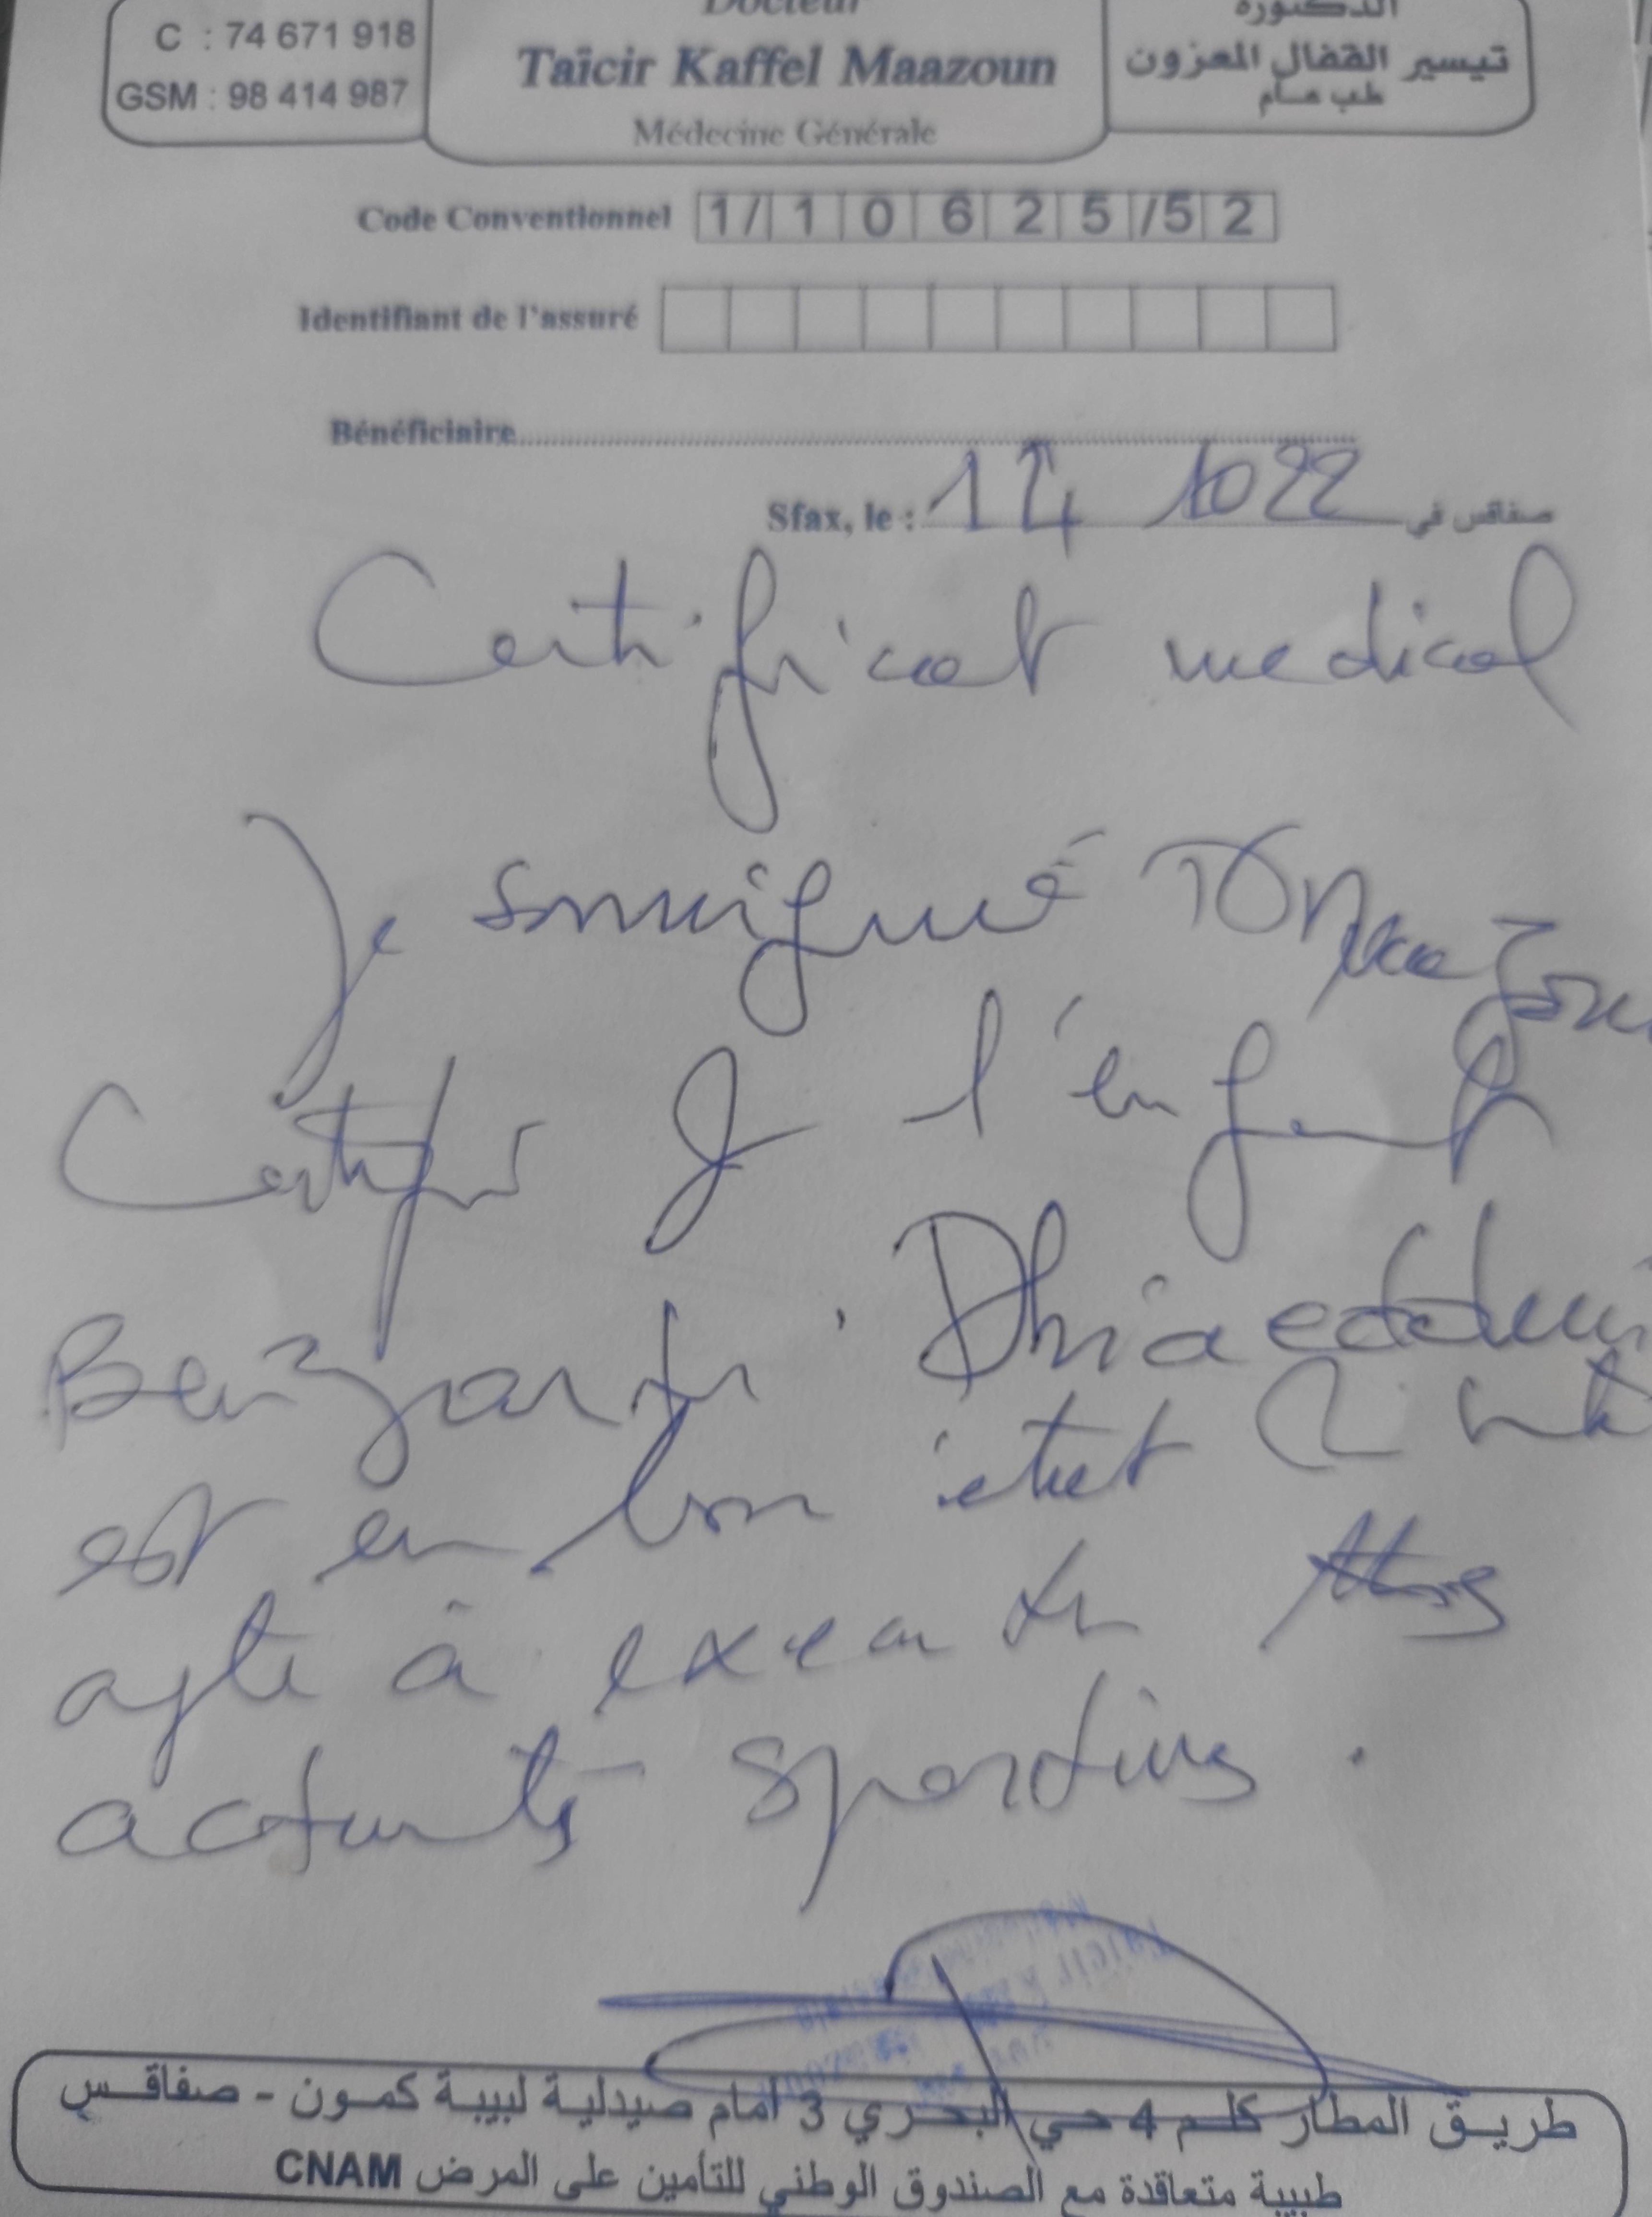 Docteur
Taïcir Kaffel Maazoun
Médecine Générale
C : 74 671 918
GSM : 98 414 987
الدكتورة
تيسير القفال المعزون
طب عام
Code Conventionnel 1/ 1 0 6 2 5 /5 2
Identifiant de l'assuré
Bénéficiaire
Sfax, le : 14 10 22 صفاقس في
Certificat medical
Je soussigné Dr Maazoun
Certifie que l'enfant
Benzarti Dhiaeddin
est en bon état
apte à executer
activités sportives.
طريق المطار كلم 4 حي البحري 3 أمام صيدلية لبيبة كمون - صفاقس
طبيبة متعاقدة مع الصندوق الوطني للتأمين على المرض CNAM